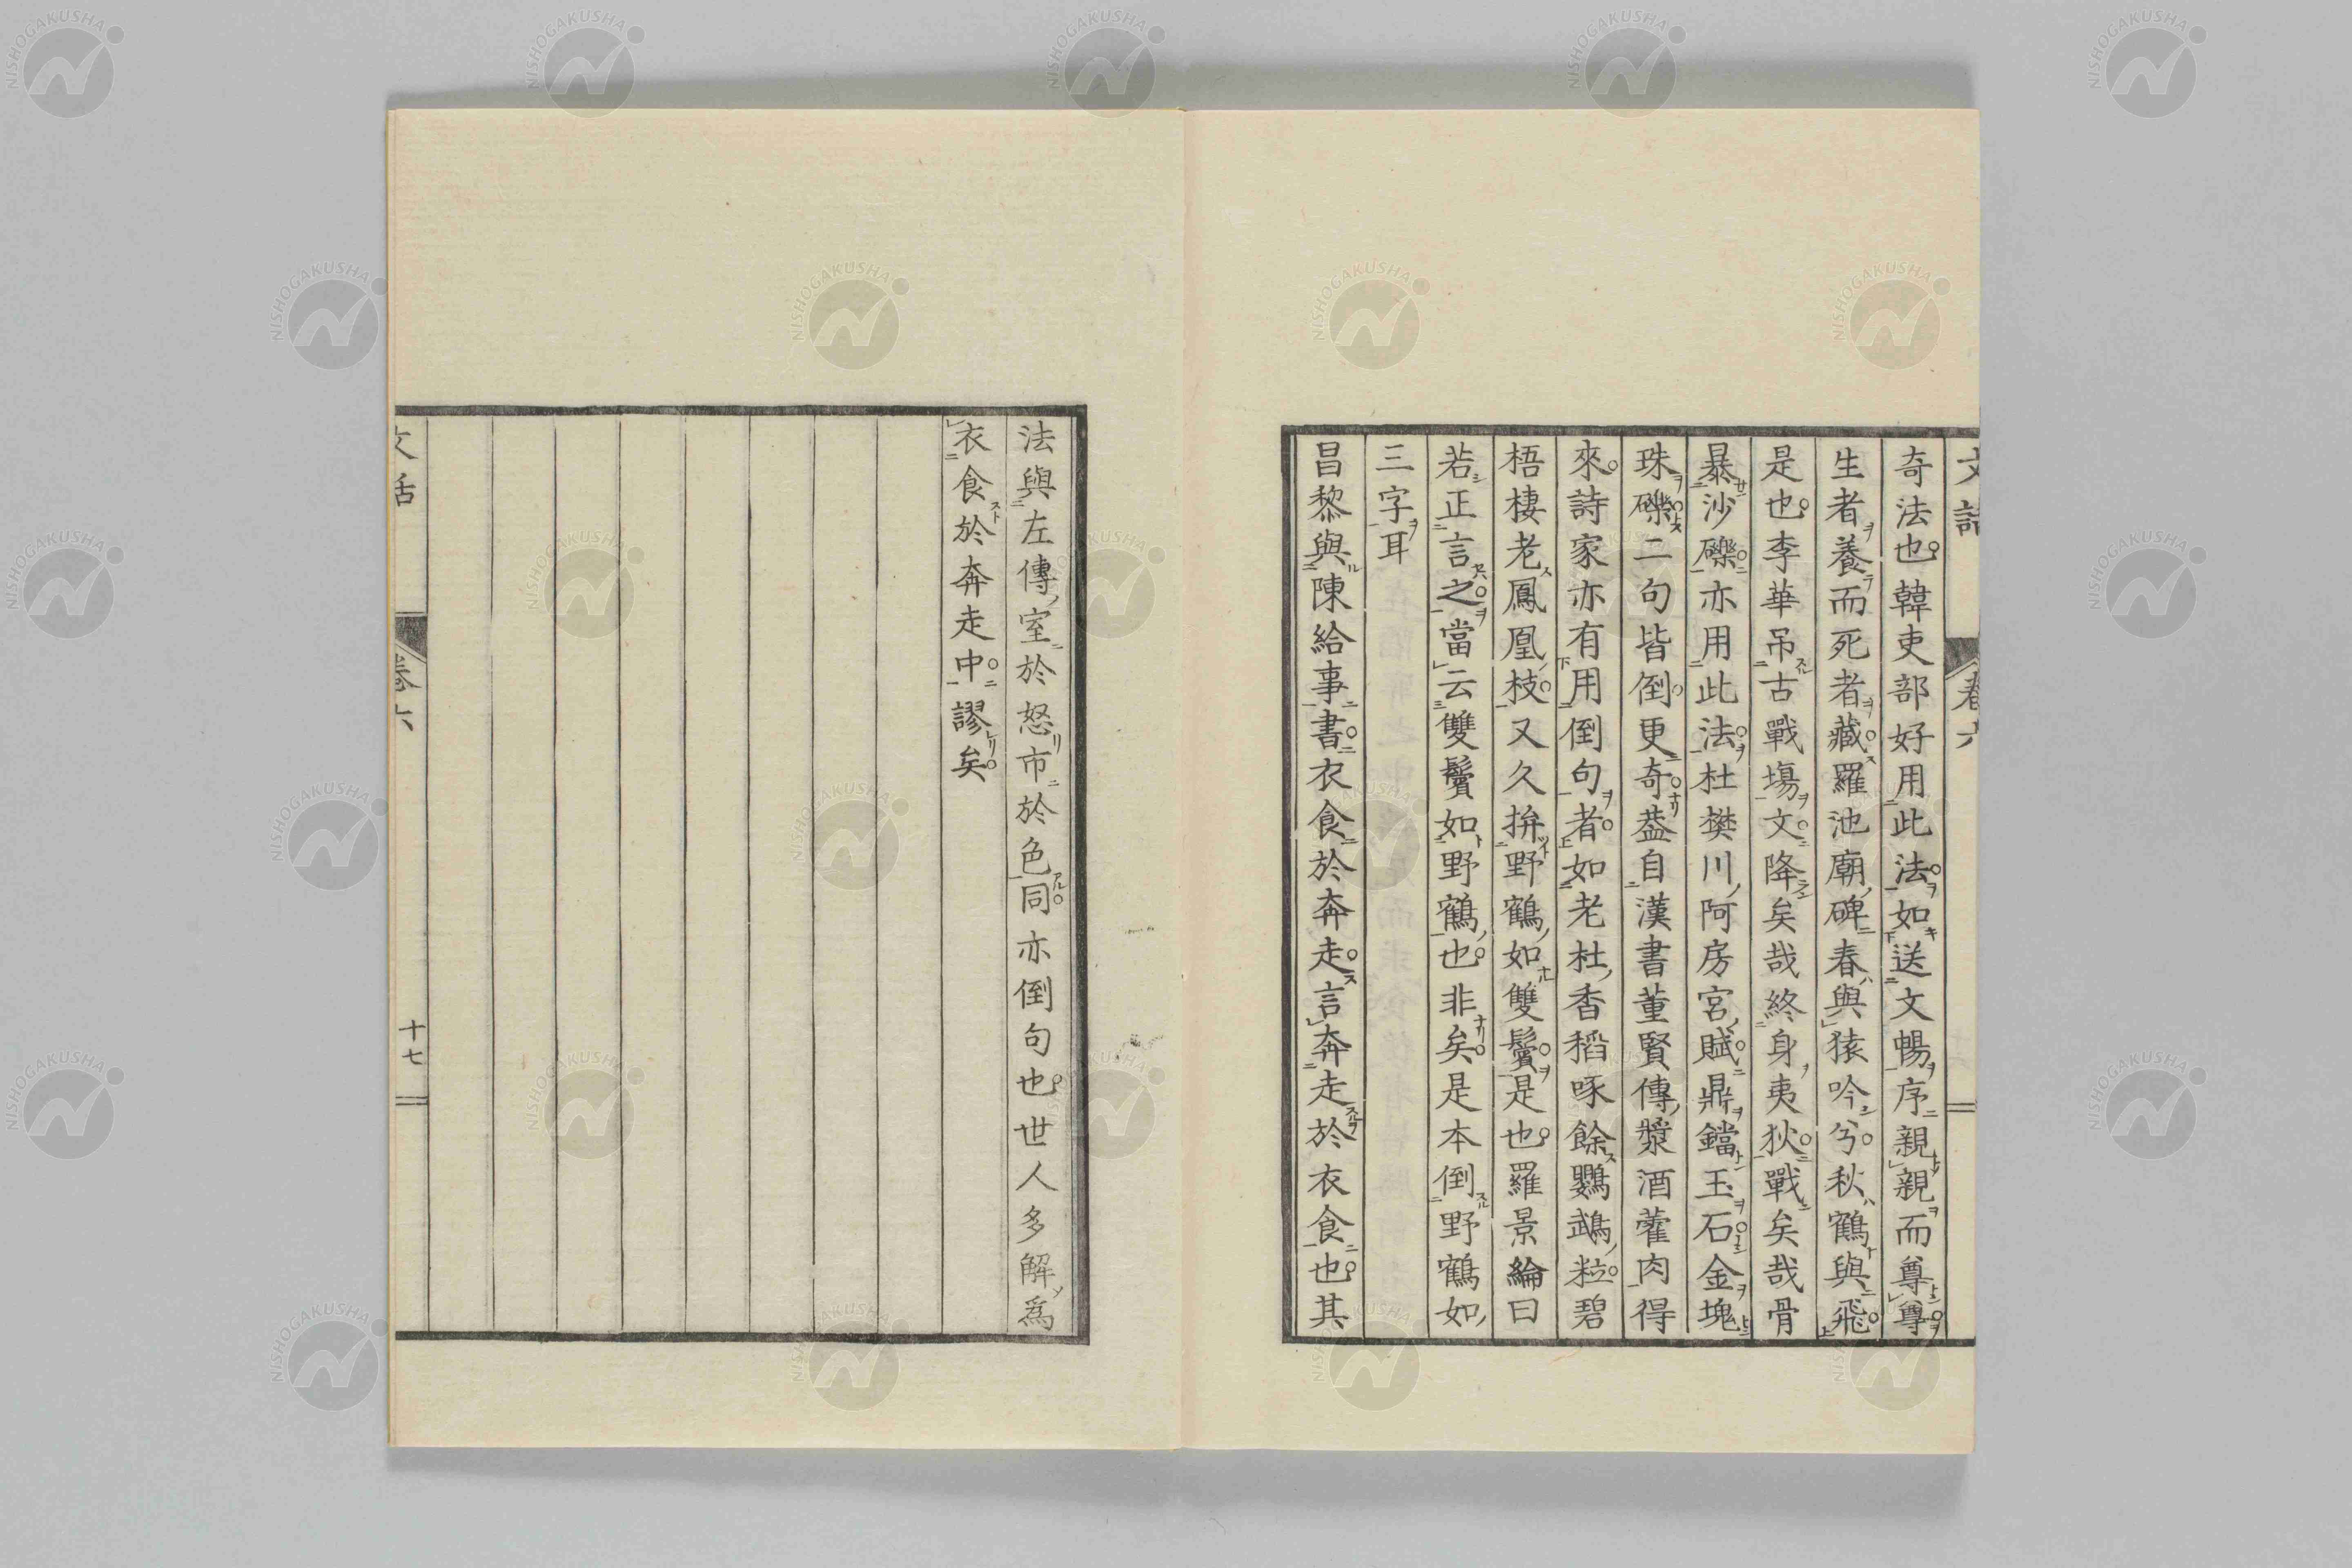 奇法也韓吏部好用此法如送文暢序親親而尊尊
生者養而死者藏羅池廟碑春與猿吟兮秋鶴與飛
是也李華吊古戰塲文降矣哉終身夷狄戰矣哉骨
暴沙礫亦用此法杜樊川阿房宮賦鼎鐺玉石金塊
珠礫二句皆倒更奇葢自漢書董賢傳漿酒藿肉得
來詩家亦有用倒句者如老杜香稻啄餘鸚鵡粒碧
梧棲老鳳凰枝又久拚野鶴如雙鬢是也羅景綸曰
若正言之當云雙鬢如野鶴也非矣是本倒野鶴如
三字耳
昌黎與陳給事書衣食於奔走言奔走於衣食也其
法與左傳室於怒市於色同亦倒句也世人多解爲
衣食於奔走中謬矣
文話
卷六
十七
NISHOGAKUSHA